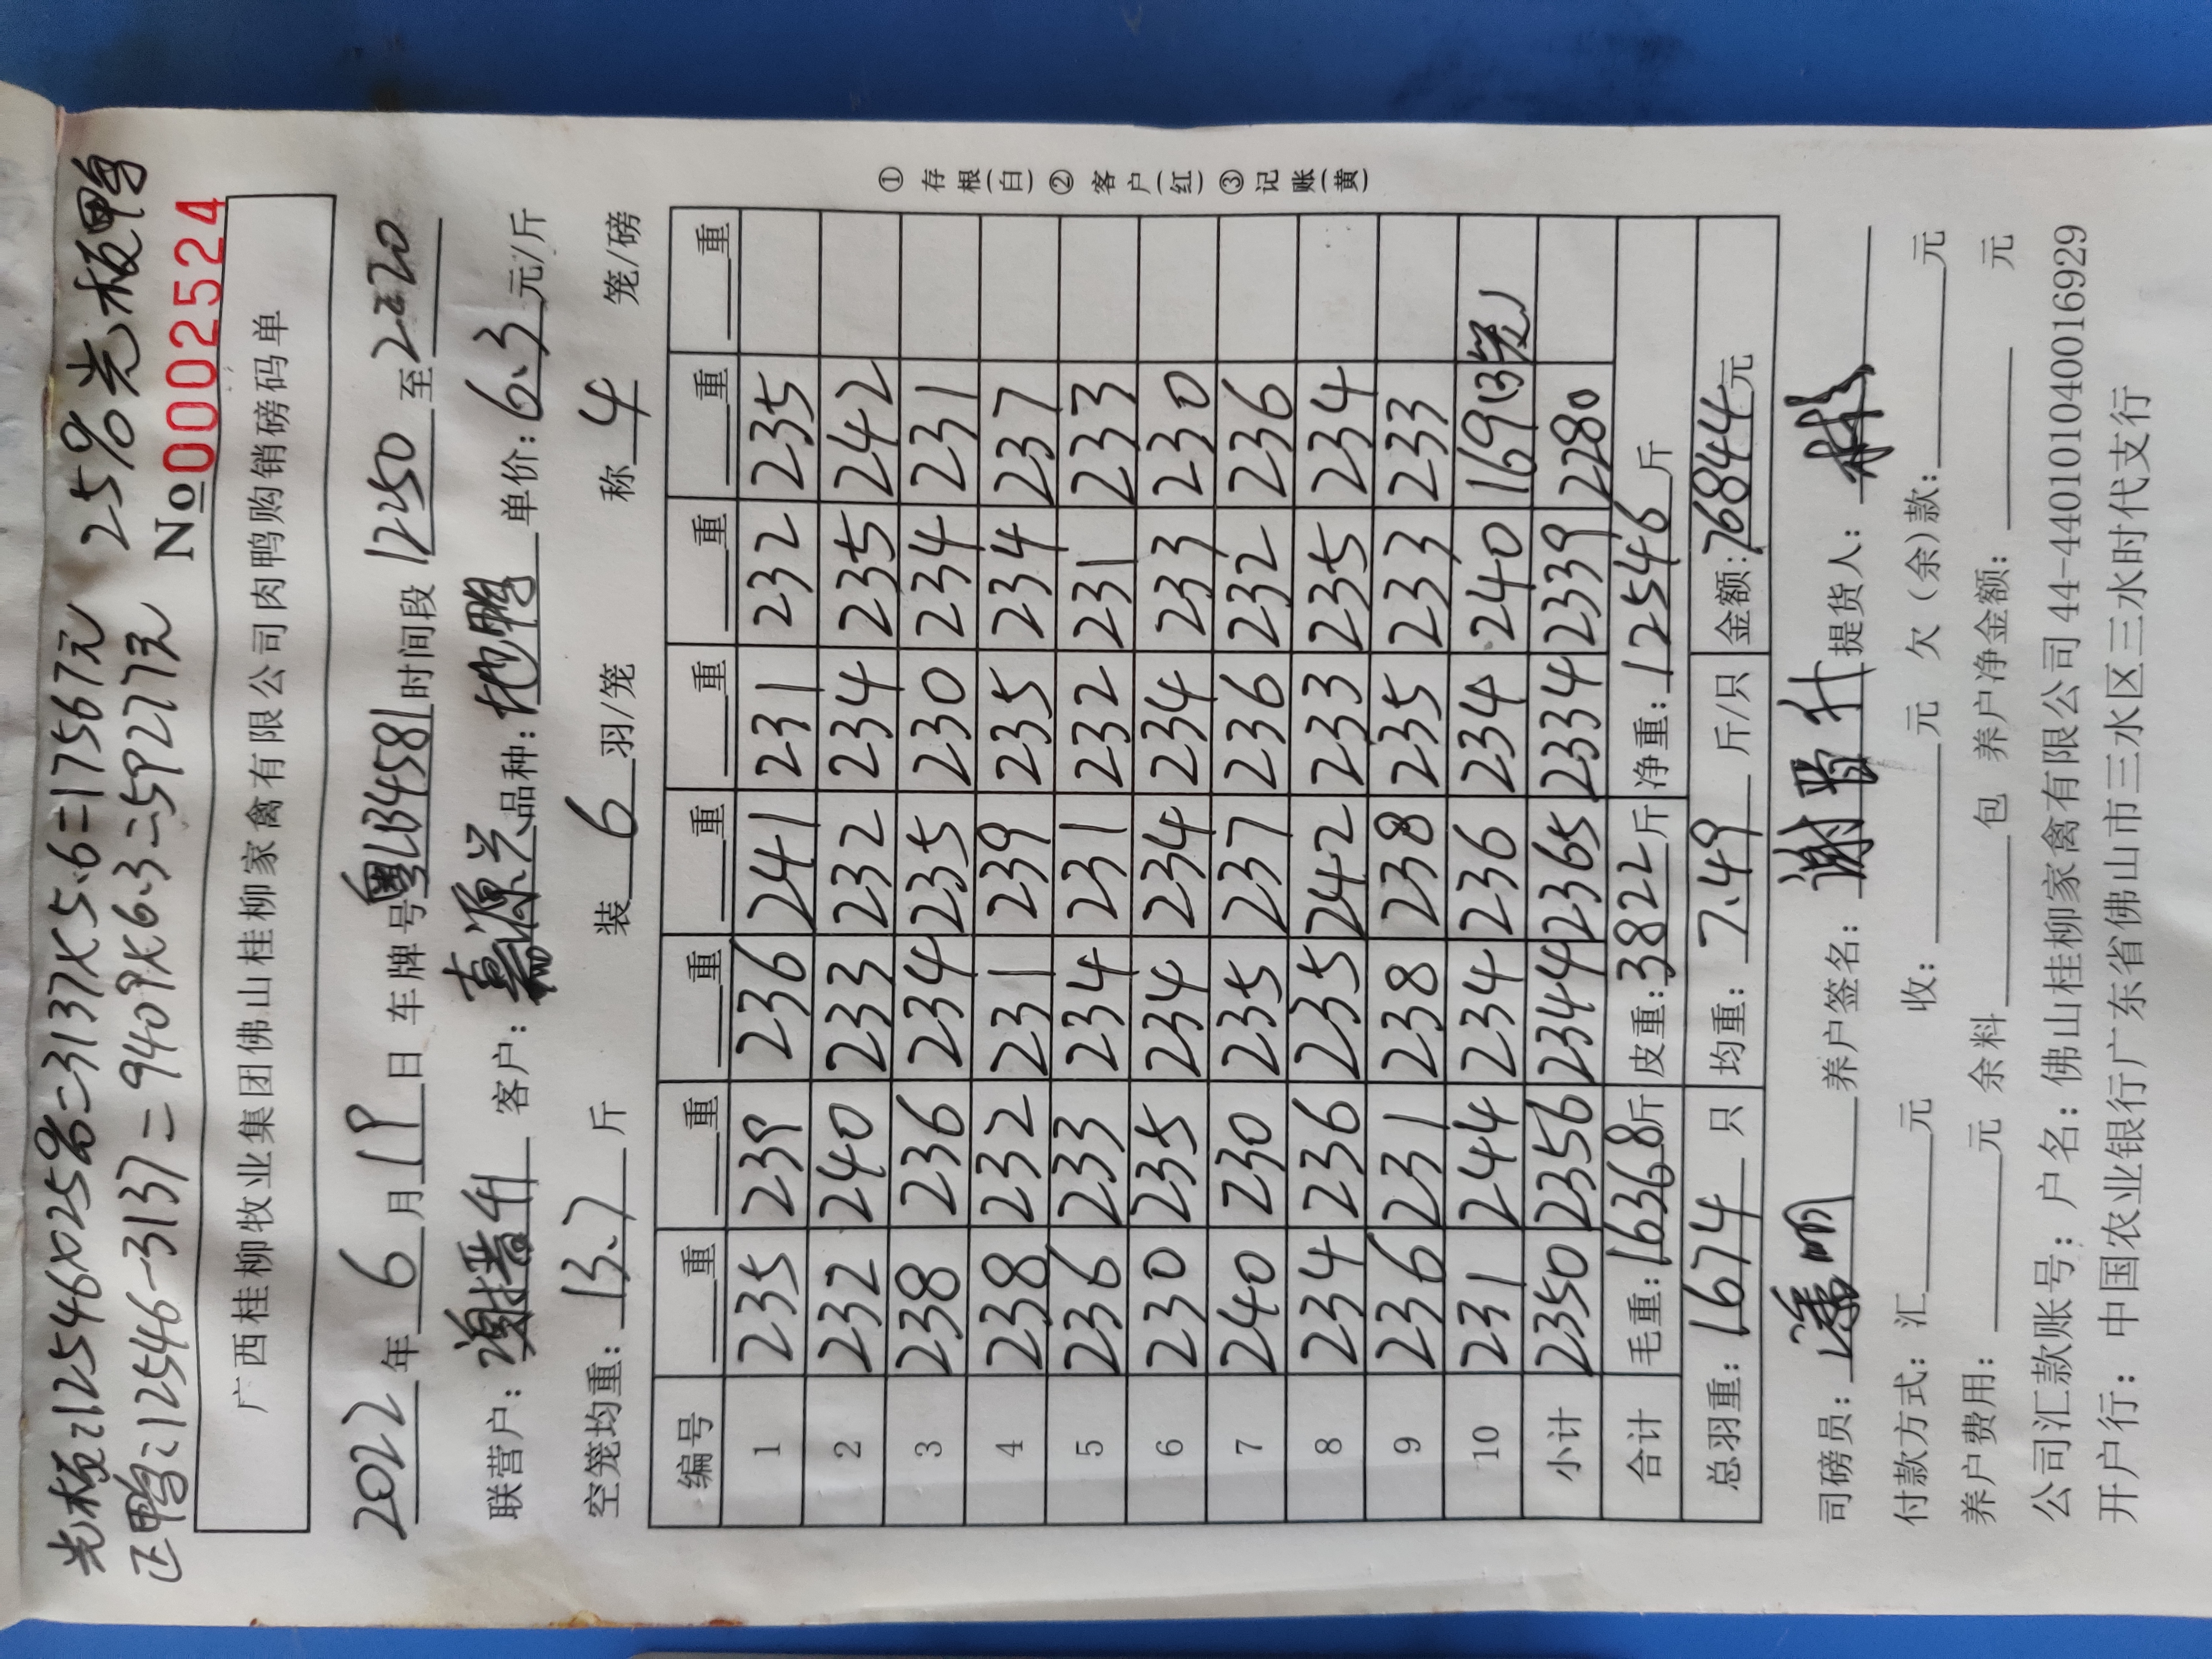 光板:12546×0.25%=3137×5.6=17567元 25%光板鸭
正鸭:12546-3137=9409×6.3=59277元
№0002524
广西桂柳牧业集团佛山桂柳家禽有限公司肉鸭购销磅码单
2022年6月19日 车牌号粤L34581时间段1250至2:20
联营户:谢晋升 客户:嘉源兴品种:地鸭单价:6.3元/斤
空笼均重:13.7斤 装6羽/笼 称4笼/磅
编号 重 重 重 重 重 重 重 重
1 235 239 236 241 231 232 235
2 232 240 233 232 234 235 242
3 238 236 234 235 230 234 231
4 238 232 231 239 235 234 237
5 236 233 234 231 232 231 233
6 230 235 234 234 234 233 230
7 240 230 235 237 236 232 236
8 234 236 235 242 233 235 234
9 236 231 238 238 235 233 233
10 231 244 234 236 234 240 169(3笼)
小计 2350 2356 2344 2365 2334 2339 2280
合计 毛重:16368斤 皮重:3822斤 净重:12546斤
总羽重:1674只 均重:7.49斤/只 金额:76844元
司磅员:潘明 养户签名:谢晋升 提货人:
付款方式:汇 元 收: 元 欠(余)款: 元
养户费用: 元 余料 包 养户净金额: 元
公司汇款账号:户名:佛山桂柳家禽有限公司44-440101040016929
开户行:中国农业银行广东省佛山市三水区三水时代支行
①存根(白)②客户(红)③记账(黄)